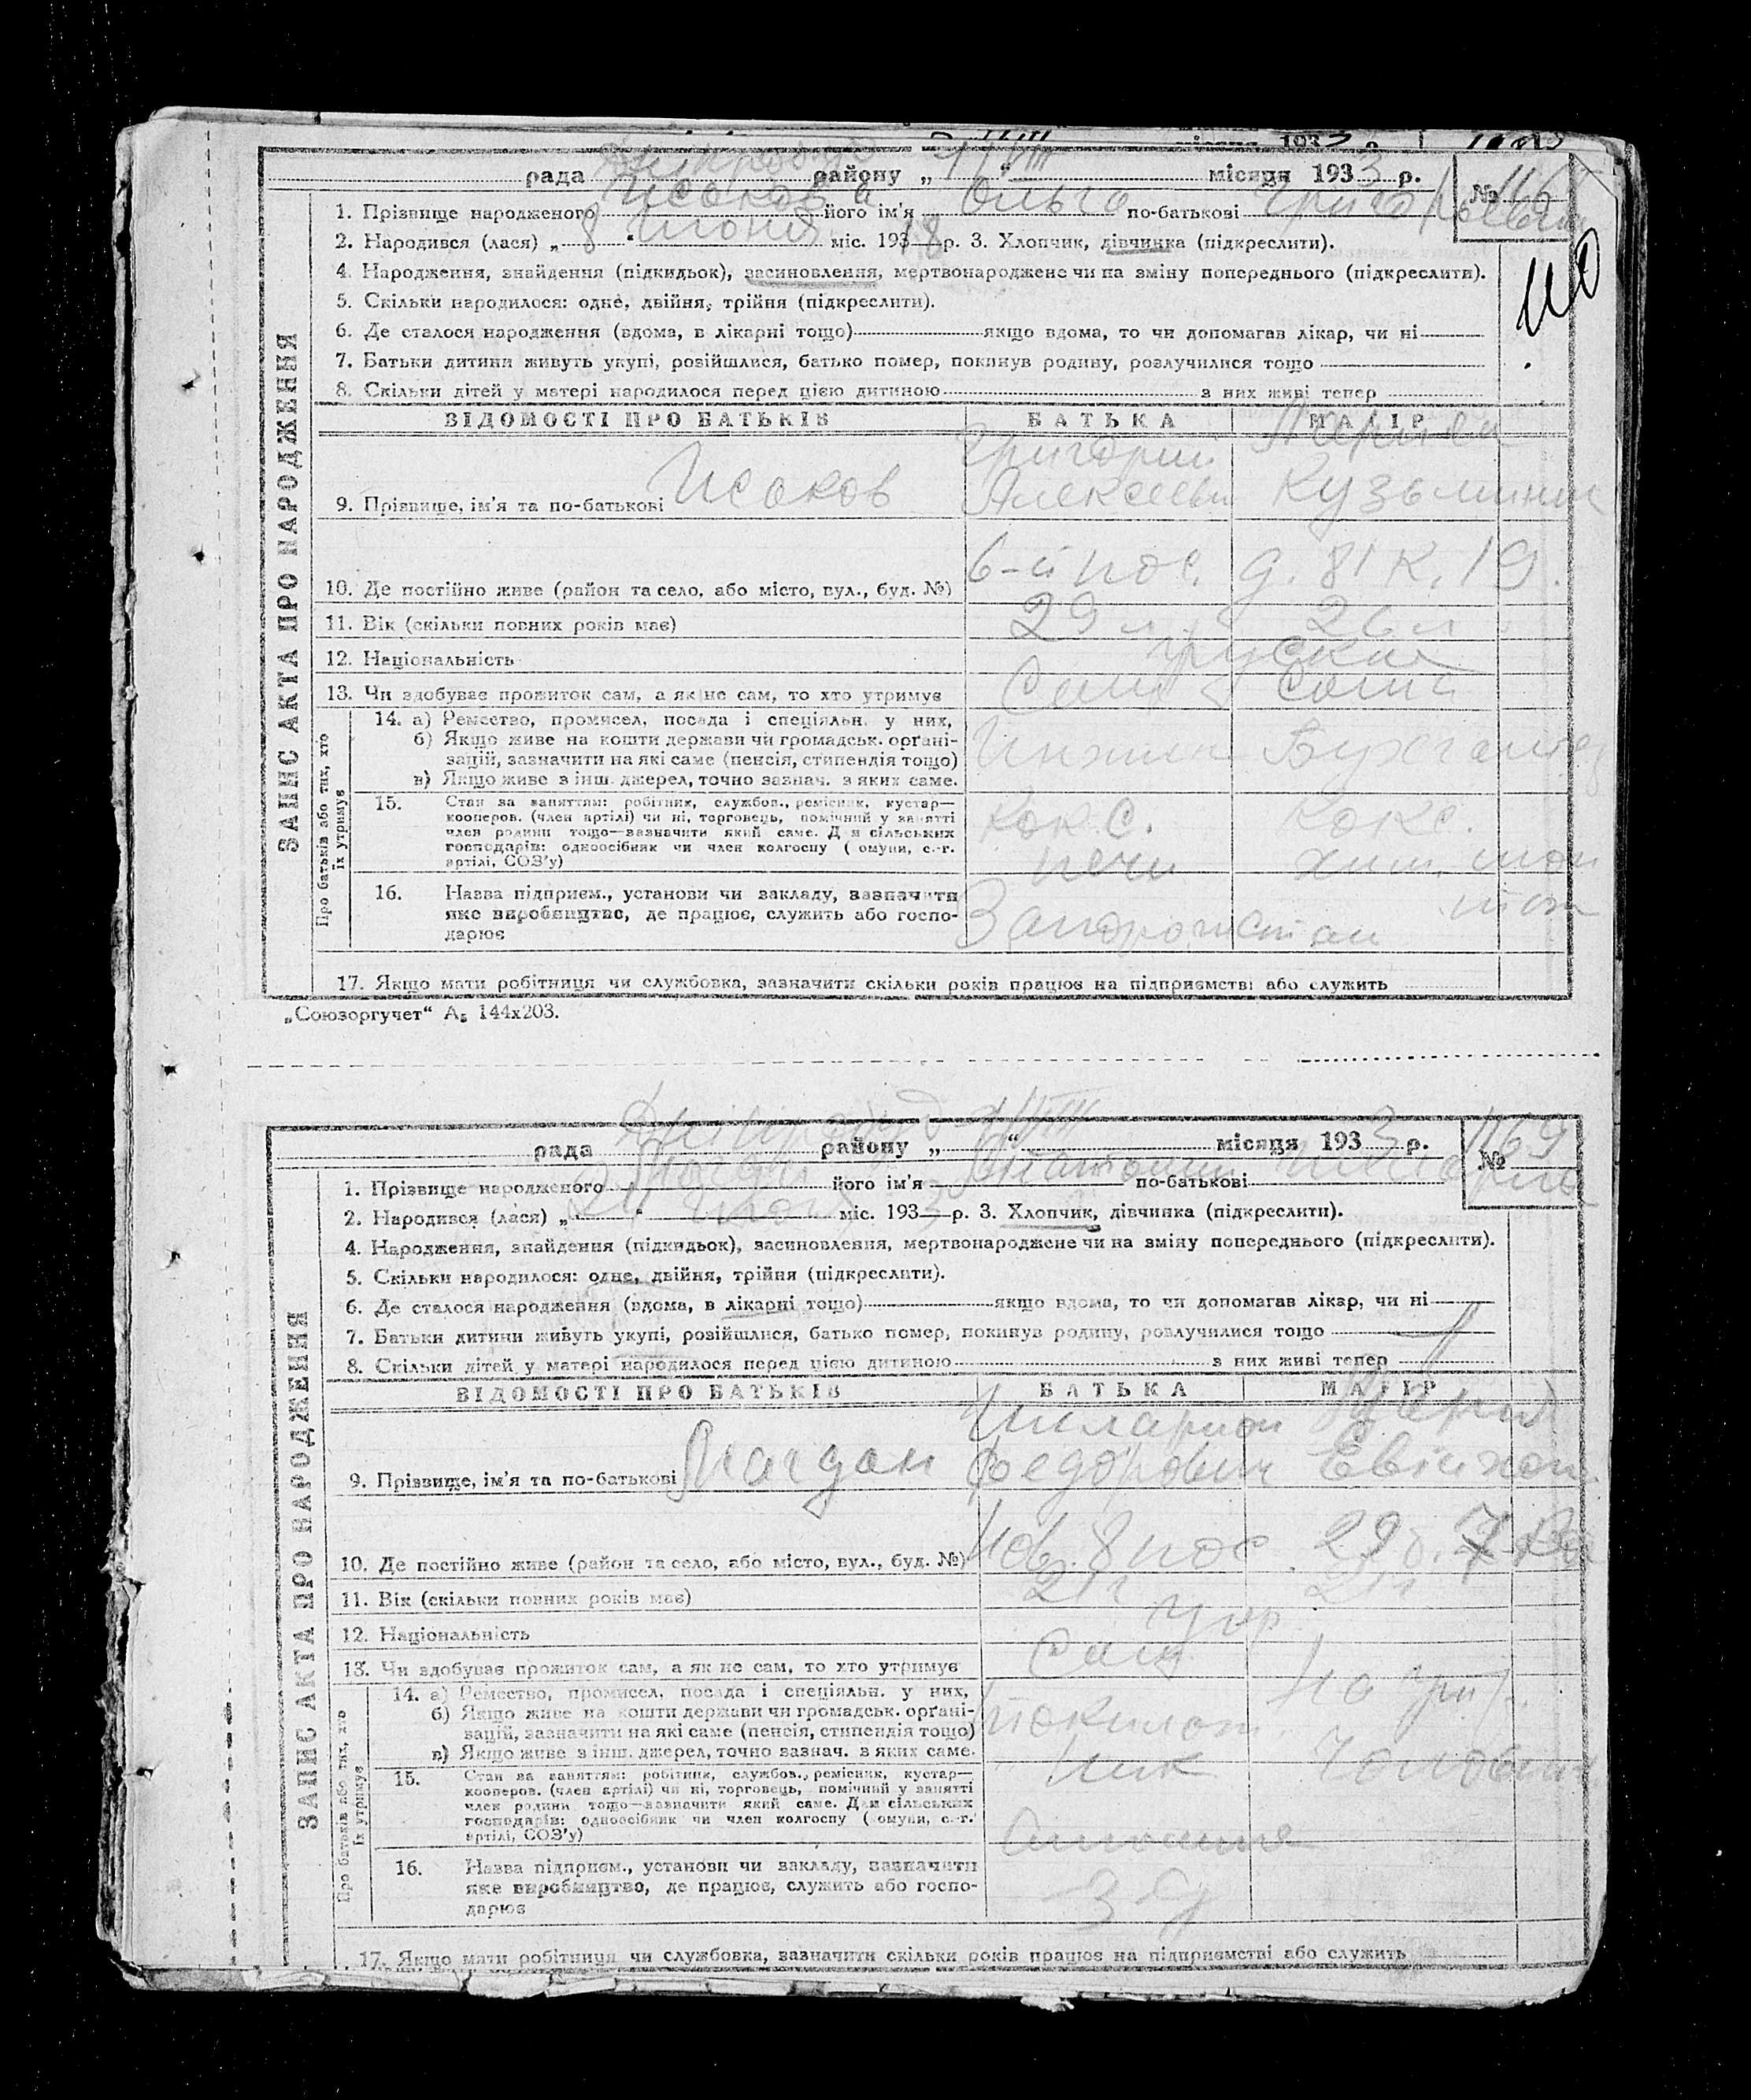 рада району „ 11/VIII “ місяця 1933 р. №
1. Прізвище народженого Исакова його ім'я Ольга по-батькові Григорьевна
2. Народився (лася) „ 8 “ Июня міс. 1918 р. 3. Хлопчик, дівчинка (підкреслити).
4. Народження, знайдення (підкидьок), засиновлення, мертвонароджене чи на зміну попереднього (підкреслити).
110
5. Скільки народилося: одне, двійня, трійня (підкреслити).
6. Де сталося народження (вдома, в лікарні тощо) якщо вдома, то чи допомагав лікар, чи ні
7. Батьки дитини живуть укупі, розійшлися, батько помер, покинув родину, розлучилися тощо
8. Скільки дітей у матері народилося перед цією дитиною з них живі тепер
ЗАПИС АКТА ПРО НАРОДЖЕННЯ
ВІДОМОСТІ ПРО БАТЬКІВ БАТЬКА МАТІР
Григорий Мария
9. Прізвище, ім'я та по-батькові Исаков Алексеевич Кузьминич
10. Де постійно живе (район та село, або місто, вул., буд. №) 6-й пос. д. 81 к. 19.
11. Вік (скільки повних років має) 29 л 26 л
12. Національність русские
13. Чи здобуває прожиток сам, а як не сам, то хто утримує Сам Сама
Про батьків або тих, хто їх утримує
14. а) Ремество, промисел, посада і спеціяльн. у них,
б) Якщо живе на кошти держави чи громадськ. орґані-
зацій, зазначити на які саме (пенсія, стипендія тощо) Бухгалтер
в) Якщо живе з інш. джерел, точно зазнач. з яких саме.
15. Стан за заняттям: робітник, службов., ремісник, кустар—
кооперов. (член артілі) чи ні, торговець, помічний у занятті Кокс. кокс.
член родини тощо—зазначити який саме. Для сільських
господарів: одноосібник чи член колгоспу (комуни, с.-г.
артілі, СОЗ'у) печи хим.
16. Назва підприєм., установи чи закладу, зазначити
яке виробництво, де працює, служить або госпо- Запорожстали
дарює
17. Якщо мати робітниця чи службовка, зазначити скільки років працює на підприємстві або служить
„Союзоргучет“ А₅ 144х203.
рада району „ “ місяця 1933 р. № 1169
1. Прізвище народженого його ім'я по-батькові
2. Народився (лася) „ “ міс. 193 3 р. 3. Хлопчик, дівчинка (підкреслити).
4. Народження, знайдення (підкидьок), засиновлення, мертвонароджене чи на зміну попереднього (підкреслити).
5. Скільки народилося: одне, двійня, трійня (підкреслити).
6. Де сталося народження (вдома, в лікарні тощо) якщо вдома, то чи допомагав лікар, чи ні
7. Батьки дитини живуть укупі, розійшлися, батько помер, покинув родину, розлучилися тощо
8. Скільки дітей у матері народилося перед цією дитиною з них живі тепер
ЗАПИС АКТА ПРО НАРОДЖЕННЯ
ВІДОМОСТІ ПРО БАТЬКІВ БАТЬКА МАТІР
9. Прізвище, ім'я та по-батькові Федорович
10. Де постійно живе (район та село, або місто, вул., буд. №) 8 пос. 29
11. Вік (скільки повних років має)
12. Національність укр
13. Чи здобуває прожиток сам, а як не сам, то хто утримує Сам
Про батьків або тих, хто їх утримує
14. а) Ремество, промисел, посада і спеціяльн. у них,
б) Якщо живе на кошти держави чи громадськ. орґані-
зацій, зазначити на які саме (пенсія, стипендія тощо)
в) Якщо живе з інш. джерел, точно зазнач. з яких саме.
15. Стан за заняттям: робітник, службов., ремісник, кустар—
кооперов. (член артілі) чи ні, торговець, помічний у занятті
член родини тощо—зазначити який саме. Для сільських
господарів: одноосібник чи член колгоспу (комуни, с.-г.
артілі, СОЗ'у)
16. Назва підприєм., установи чи закладу, зазначити
яке виробництво, де працює, служить або госпо-
дарює
17. Якщо мати робітниця чи службовка, зазначити скільки років працює на підприємстві або служить